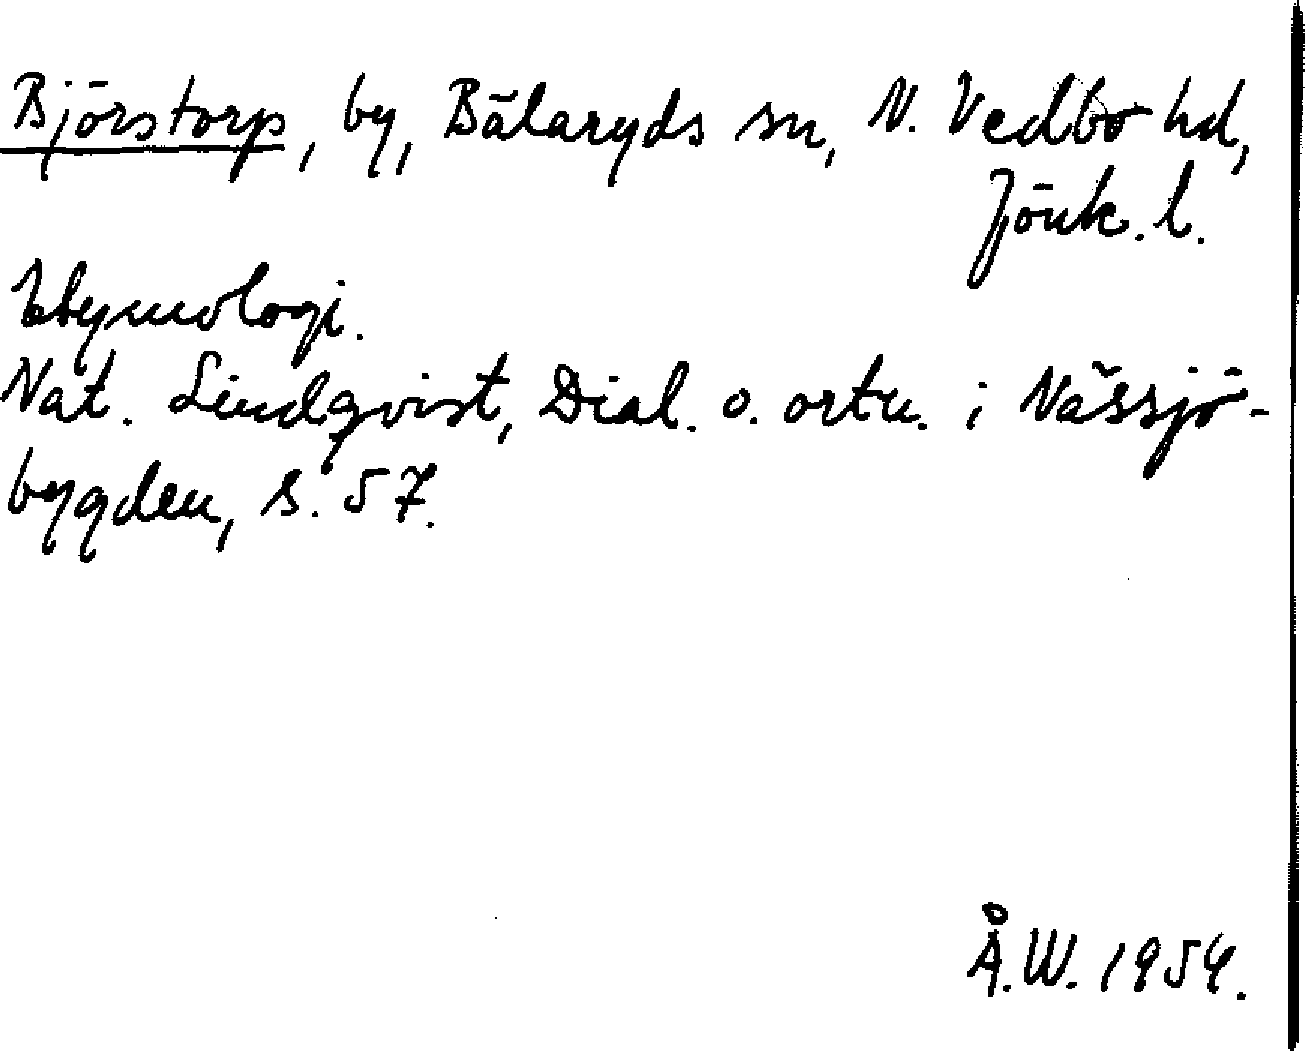 Björstorp, by, Bälaryds sn, N. Vedbo hd,
Jönk. l.
Etymologi.
Nat. Lindqvist, Dial. o. ortn. i Nässjö-
bygden, s. 57.
Å.W. 1954.